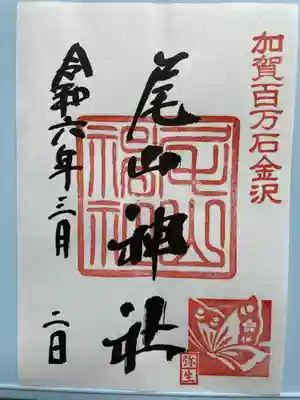 加賀百万石金沢
尾山神社
令和六年三月二日
弥生